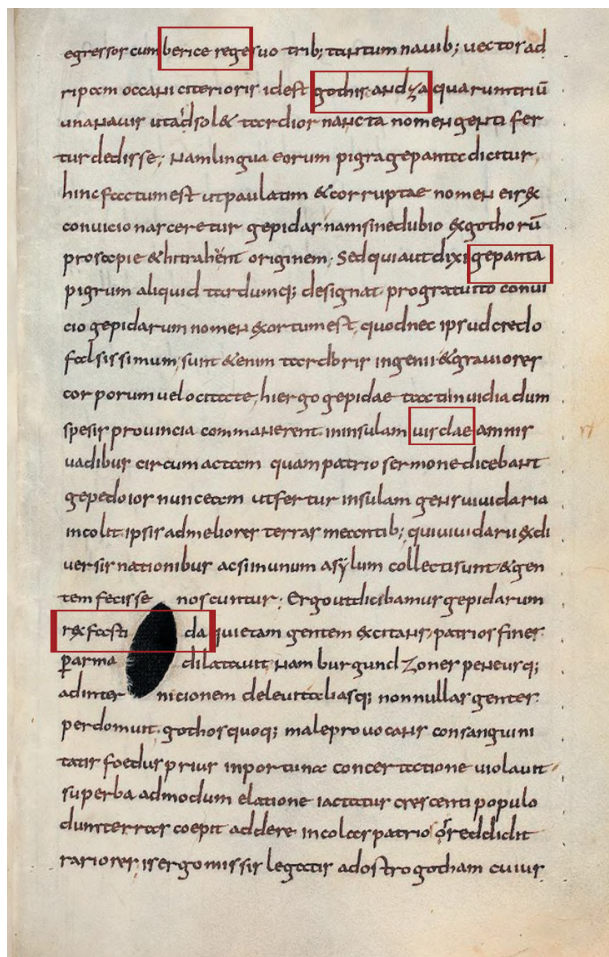 egressos cum berice rege suo trib; tantum nauib; uectos ad
ripam occani citerioris id est gothis andza quarum triū
una nauis ut adsolet tardior nancta nomen genti fer
tur dedisse; nam lingua eorum pigra gepanta dicitur
hinc factum est ut paulatim & corruptae nomen eis ex
conuicio nasceretur gepidas nam sine dubio ex gothorū
prosapie & hi trahent originem; Sed quia ut dixi gepanta
pigrum aliquid tardumq; designat pro gratuito conui
cio gepidarum nomen exortum est, quod nec ipsud credo
falsissimum, sunt &enim tardioris ingenii & grauiores
corporum uelocitate, hi ergo gepidae tacti inuidia dum
spesis prouincia commanerent in insulam uisclae amnis
uadibus circum actam quam patrio sermone dicebant
gepedoios nunc eam ut fertur insulam gens uiuidaria
incolit ipsis ad meliores terras meantib; qui uiuidarii ex di
uersis nationibus ac si in unum asylum collecti sunt & gen
tem fecisse noscuntur; Ergo ut dicibamus gepidarum
rex fasti da qui etam gentem excitans patrios fines
p arma dilatauit nam burgundzones peneusq;
ad inter nicionem deleuit aliasq; non nullas gentes
perdomuit. gothos quoq; male prouocans consanguini
tatis foedus prius inportuna concertatione uiolauit
superba admodum elatione iactatus crescenti populo
dum terras coepit addere incolas patrios reddidit
rariores, is ergo missis legatis ad ostrogotham cuius